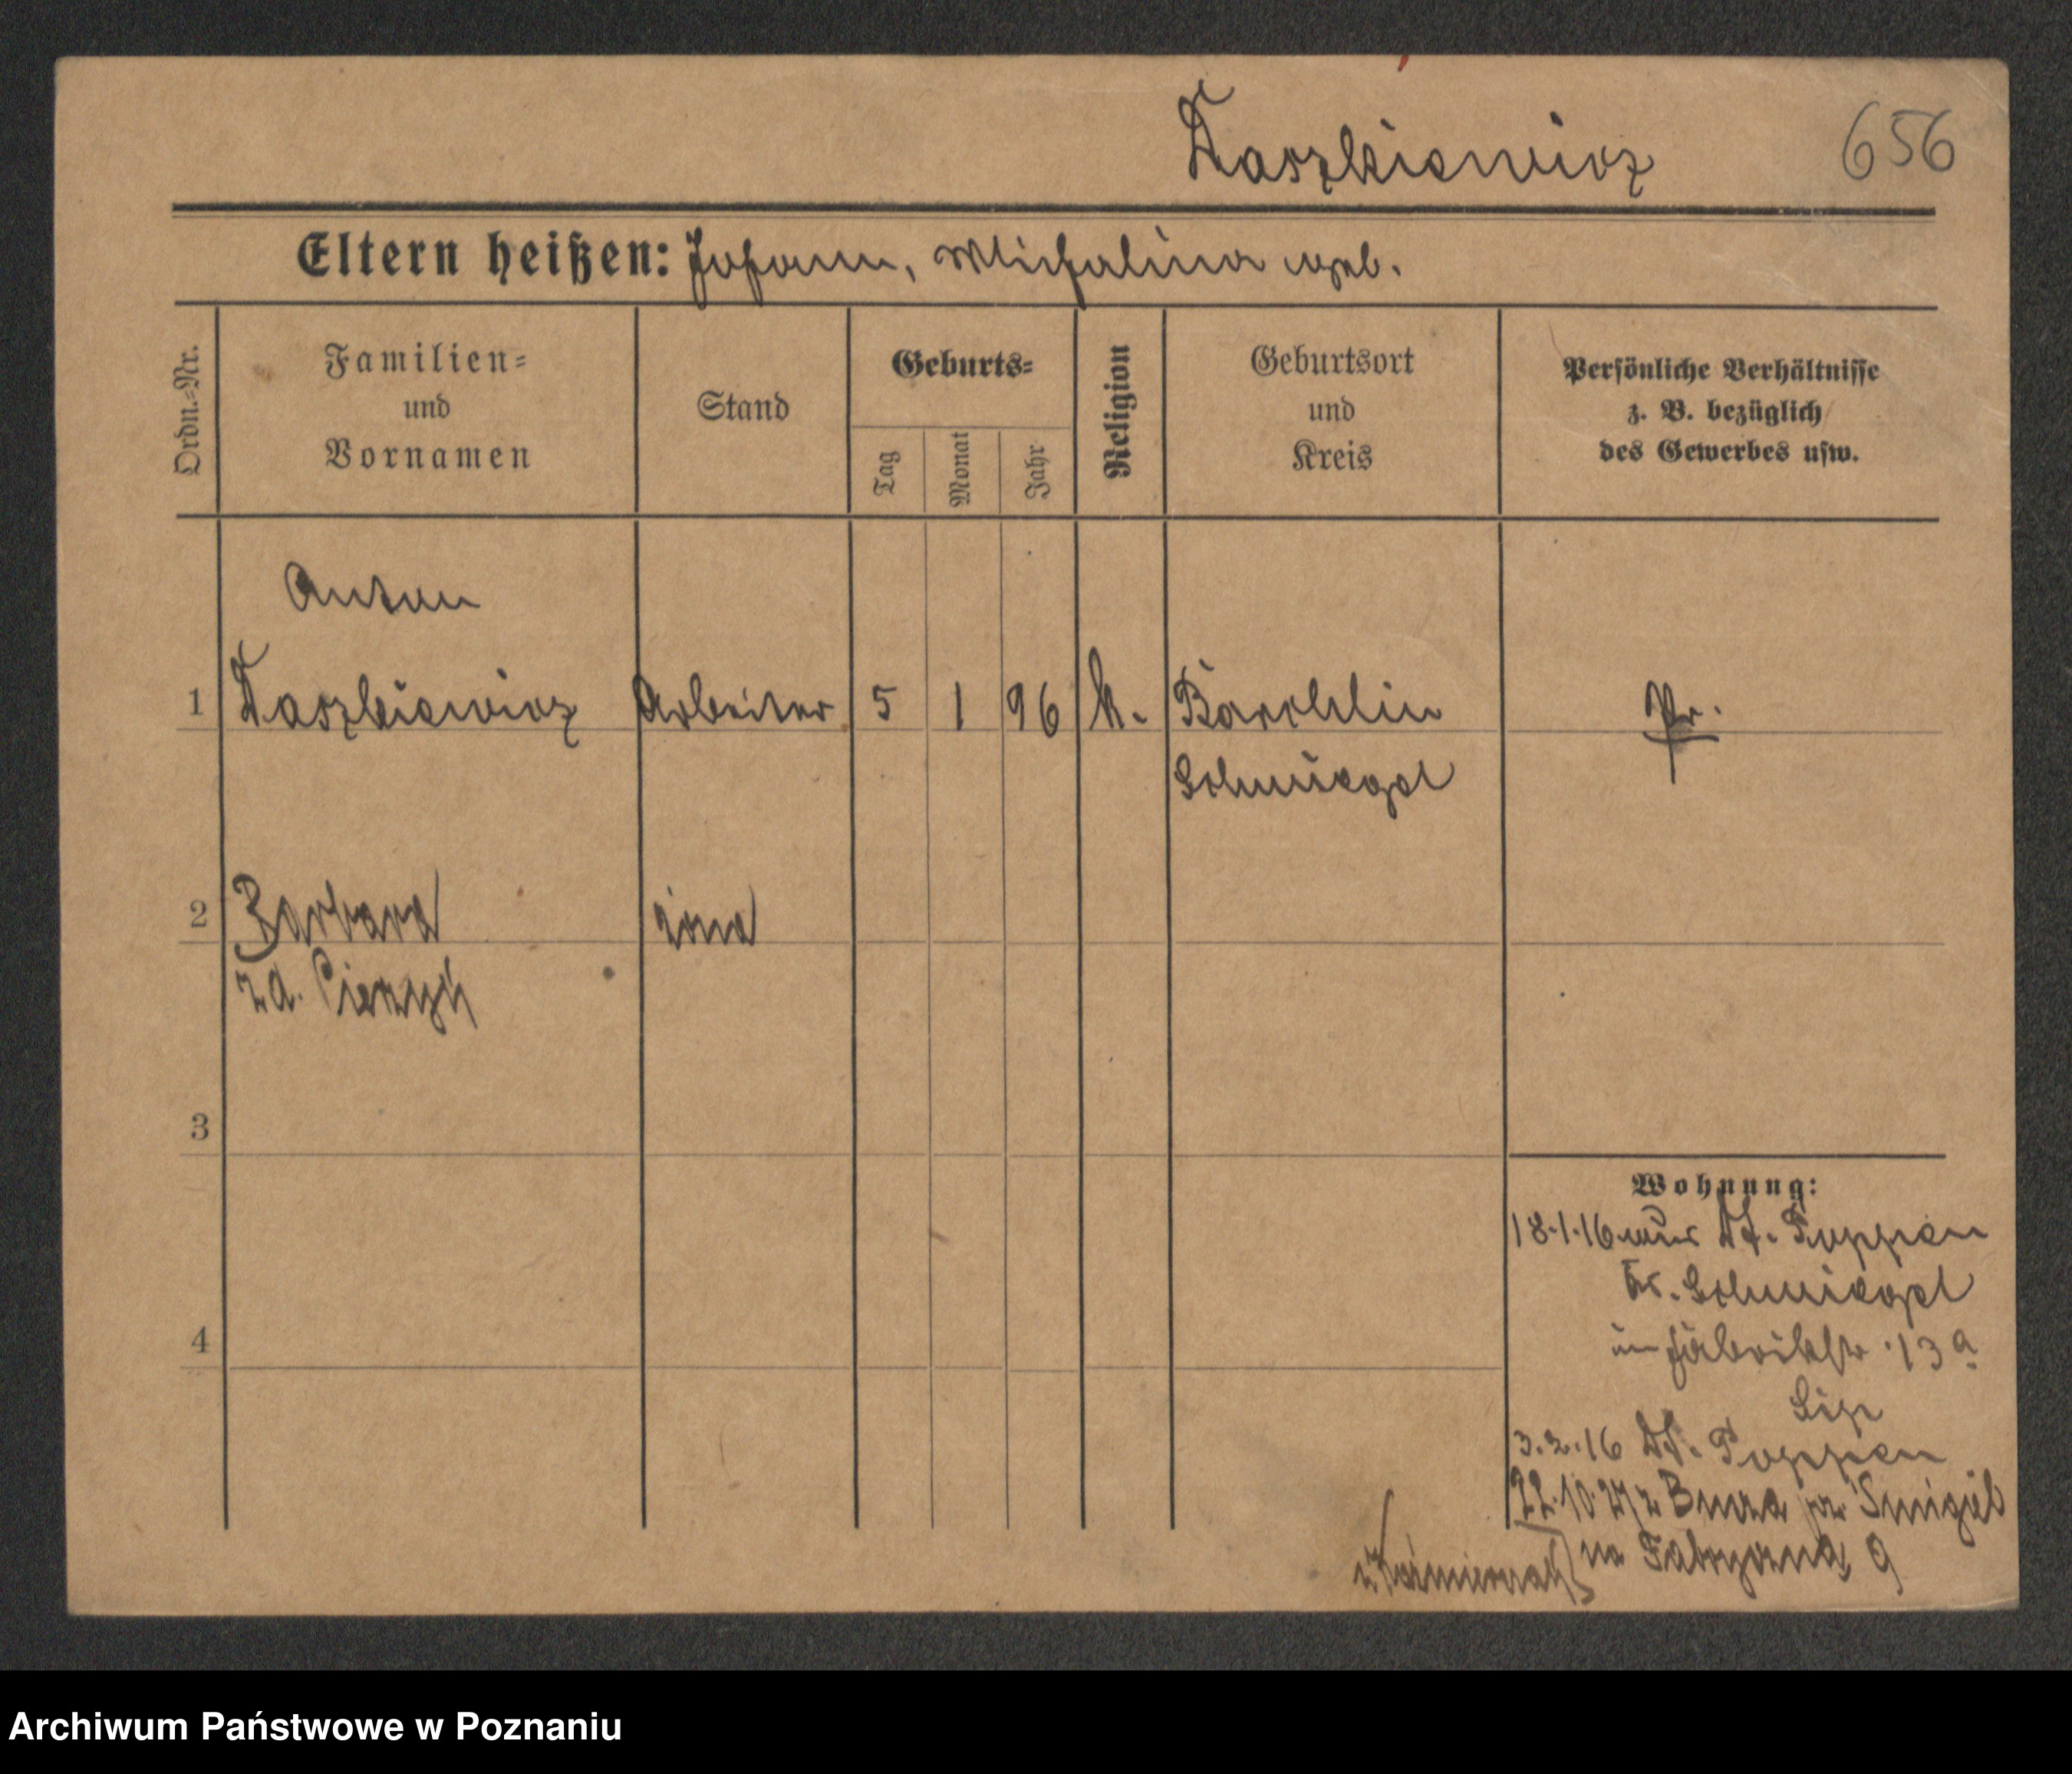 Taszkiewicz 656
Eltern heißen: Johann, Michalina geb.
Ordn.=Nr.
Familien=
und
Vornamen
Stand
Geburts=
Tag
Monat
Jahr
Religion
Geburtsort
und
Kreis
Persönliche Verhältnisse
z. B. bezüglich
des Gewerbes usw.
Anton
1 Taszkiewicz Arbeiter 5 1 96 k. Barchlin Pr.
Schmiegel
2 Barbara żona
zd.
3
Wohnung:
18.1.16 aus Poppen
Kr. Schmiegel
in Fabrikstr. 13a
4
3.2.16 Poppen
22.10. z Śmigiel
na Fabryczną 9
Archiwum Państwowe w Poznaniu